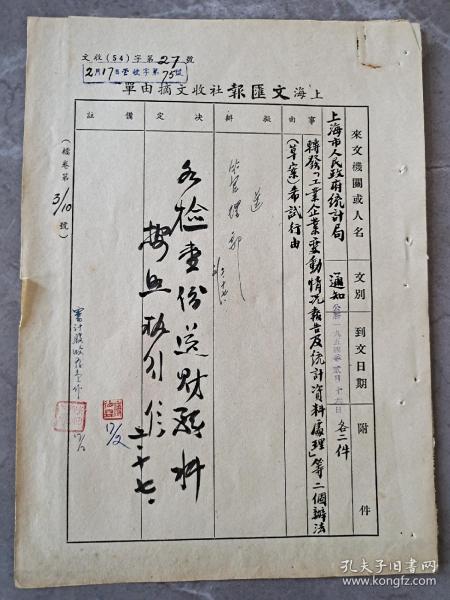 文收(54)字第27號
2月17日 字第75號
上海文匯報社收文摘由單
來文機關或人名
上海市人民政府统計局
文別
通知
到文日期
公曆一九五四年貳月十六日
附件
各二件
事由
轉發「工業企業变動情况報告及统計資料處理」等二個辦法
(草案)希試行由
擬辦
送
决定
各检壹份送财務科
按照执行
二·十七·
備註
17/2
(檔卷第3/10號)
孔夫子旧书网
www.kongfz.com